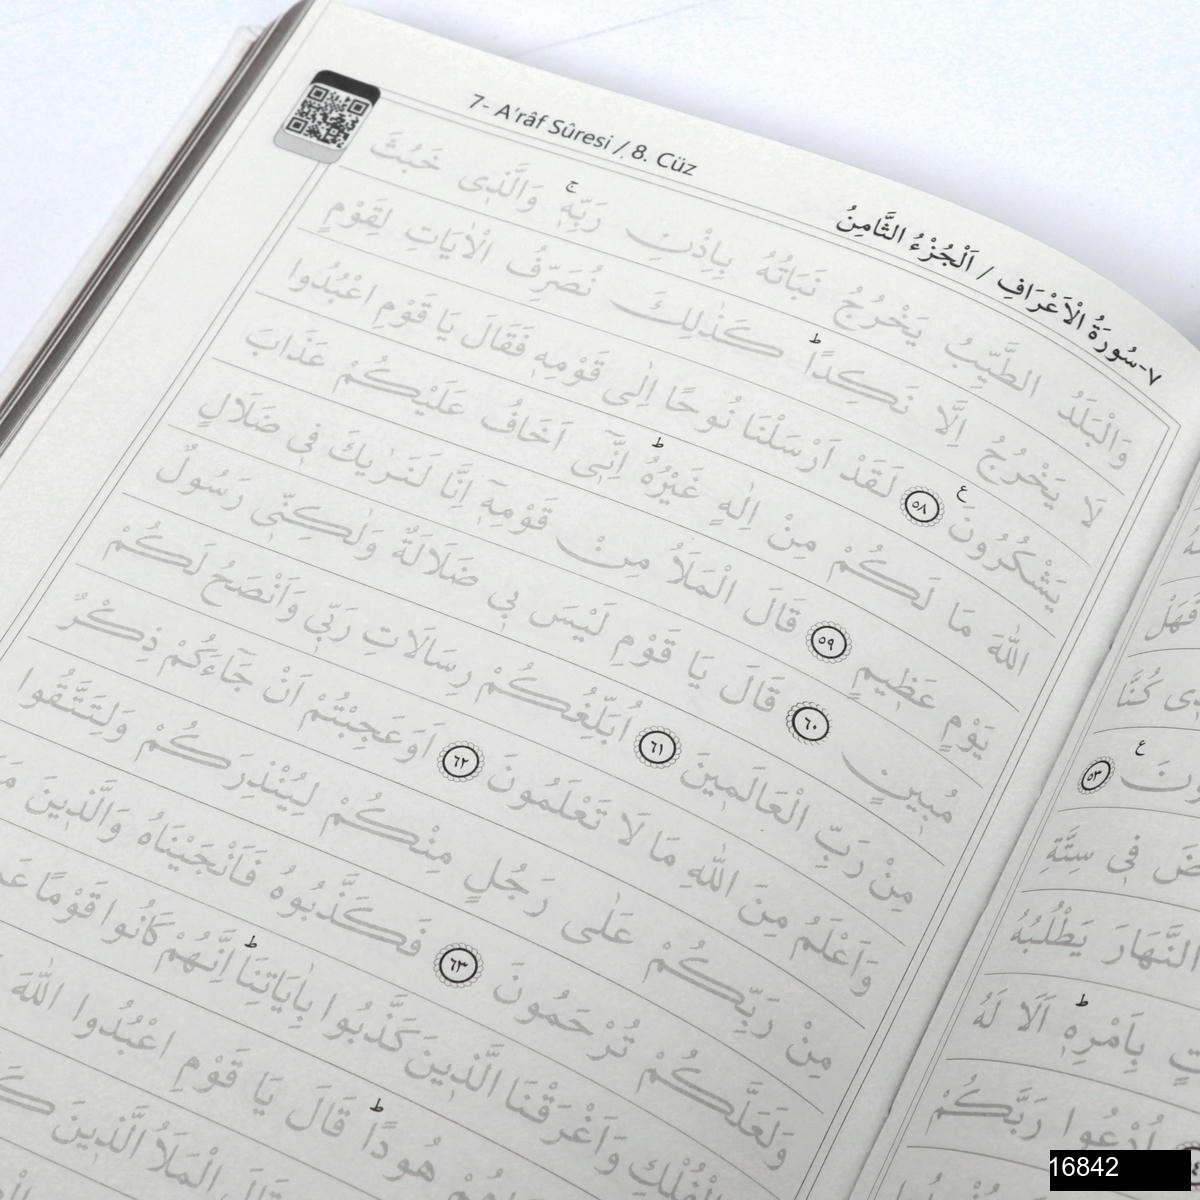 7- A'râf Sûresi / 8. Cüz
٧-سُورَةُ الْاَعْرَافِ / اَلْجُزْءُ الثَّامِنُ
وَالْبَلَدُ الطَّيِّبُ يَخْرُجُ نَبَاتُهُ بِاِذْنِ رَبِّهٖۚ وَالَّذٖى خَبُثَ
لَا يَخْرُجُ اِلَّا نَكِدًاؕ كَذٰلِكَ نُصَرِّفُ الْاٰيَاتِ لِقَوْمٍ
يَشْكُرُونَ ࣖ ﴿٥٨﴾ لَقَدْ اَرْسَلْنَا نُوحًا اِلٰى قَوْمِهٖ فَقَالَ يَا قَوْمِ اعْبُدُوا
اللّٰهَ مَا لَكُمْ مِنْ اِلٰهٍ غَيْرُهُؕ اِنّٖٓى اَخَافُ عَلَيْكُمْ عَذَابَ
يَوْمٍ عَظٖيمٍ ﴿٥٩﴾ قَالَ الْمَلَاُ مِنْ قَوْمِهٖٓ اِنَّا لَنَرٰيكَ فٖى ضَلَالٍ
مُبٖينٍ ﴿٦٠﴾ قَالَ يَا قَوْمِ لَيْسَ بٖى ضَلَالَةٌ وَلٰكِنّٖى رَسُولٌ
مِنْ رَبِّ الْعَالَمٖينَ ﴿٦١﴾ اُبَلِّغُكُمْ رِسَالَاتِ رَبّٖى وَاَنْصَحُ لَكُمْ
وَاَعْلَمُ مِنَ اللّٰهِ مَا لَا تَعْلَمُونَ ﴿٦٢﴾ اَوَعَجِبْتُمْ اَنْ جَٓاءَكُمْ ذِكْرٌ
مِنْ رَبِّكُمْ عَلٰى رَجُلٍ مِنْكُمْ لِيُنْذِرَكُمْ وَلِتَتَّقُوا
وَلَعَلَّكُمْ تُرْحَمُونَ ﴿٦٣﴾ فَكَذَّبُوهُ فَاَنْجَيْنَاهُ وَالَّذٖينَ
الْفُلْكِ وَاَغْرَقْنَا الَّذٖينَ كَذَّبُوا بِاٰيَاتِنَاؕ اِنَّهُمْ كَانُوا قَوْمًا
هُودًاؕ قَالَ يَا قَوْمِ اعْبُدُوا اللّٰهَ
قَالَ الْمَلَاُ الَّذٖينَ
كُنَّا
﴿٥٣﴾
فٖى سِتَّةِ
النَّهَارَ يَطْلُبُهُ
بِاَمْرِهٖؕ اَلَا لَهُ
اُدْعُوا رَبَّكُمْ
16842